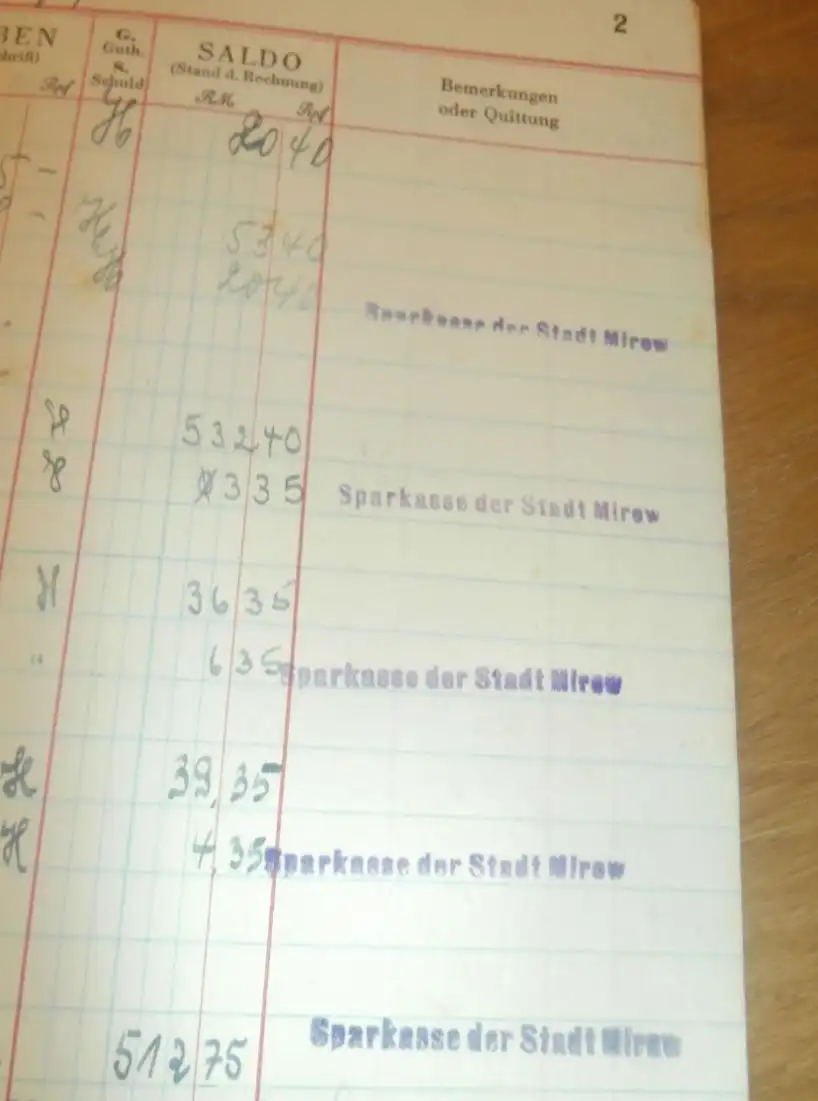 2
BEN
G.
Guth.
S.
Schuld
SALDO
(Stand d. Rechnung)
RM Rpf
Rpf
Bemerkungen
oder Quittung
H 20 40
5 -
-
H 53 40
H 20 40
Sparkasse der Stadt Mirow
H 532 40
3 35
Sparkasse der Stadt Mirow
H 36 35
" 6 35 Sparkasse der Stadt Mirow
H 39, 35
H 4, 35 Sparkasse der Stadt Mirow
512 75 Sparkasse der Stadt Mirow